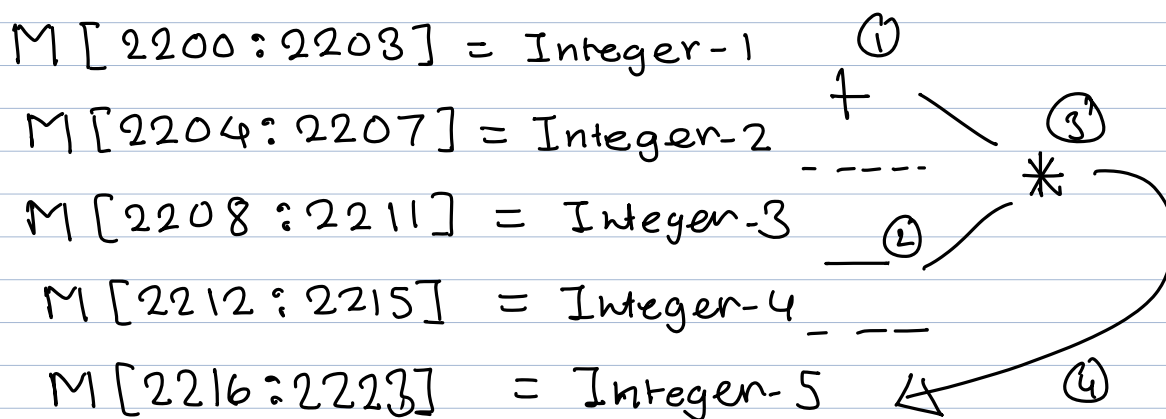 M [ 2200 : 2203 ] = Integer-1 ①
M [ 2204 : 2207 ] = Integer-2 + ③
M [ 2208 : 2211 ] = Integer-3 * ②
M [ 2212 : 2215 ] = Integer-4 —
M [ 2216 : 2223 ] = Integer-5 ④